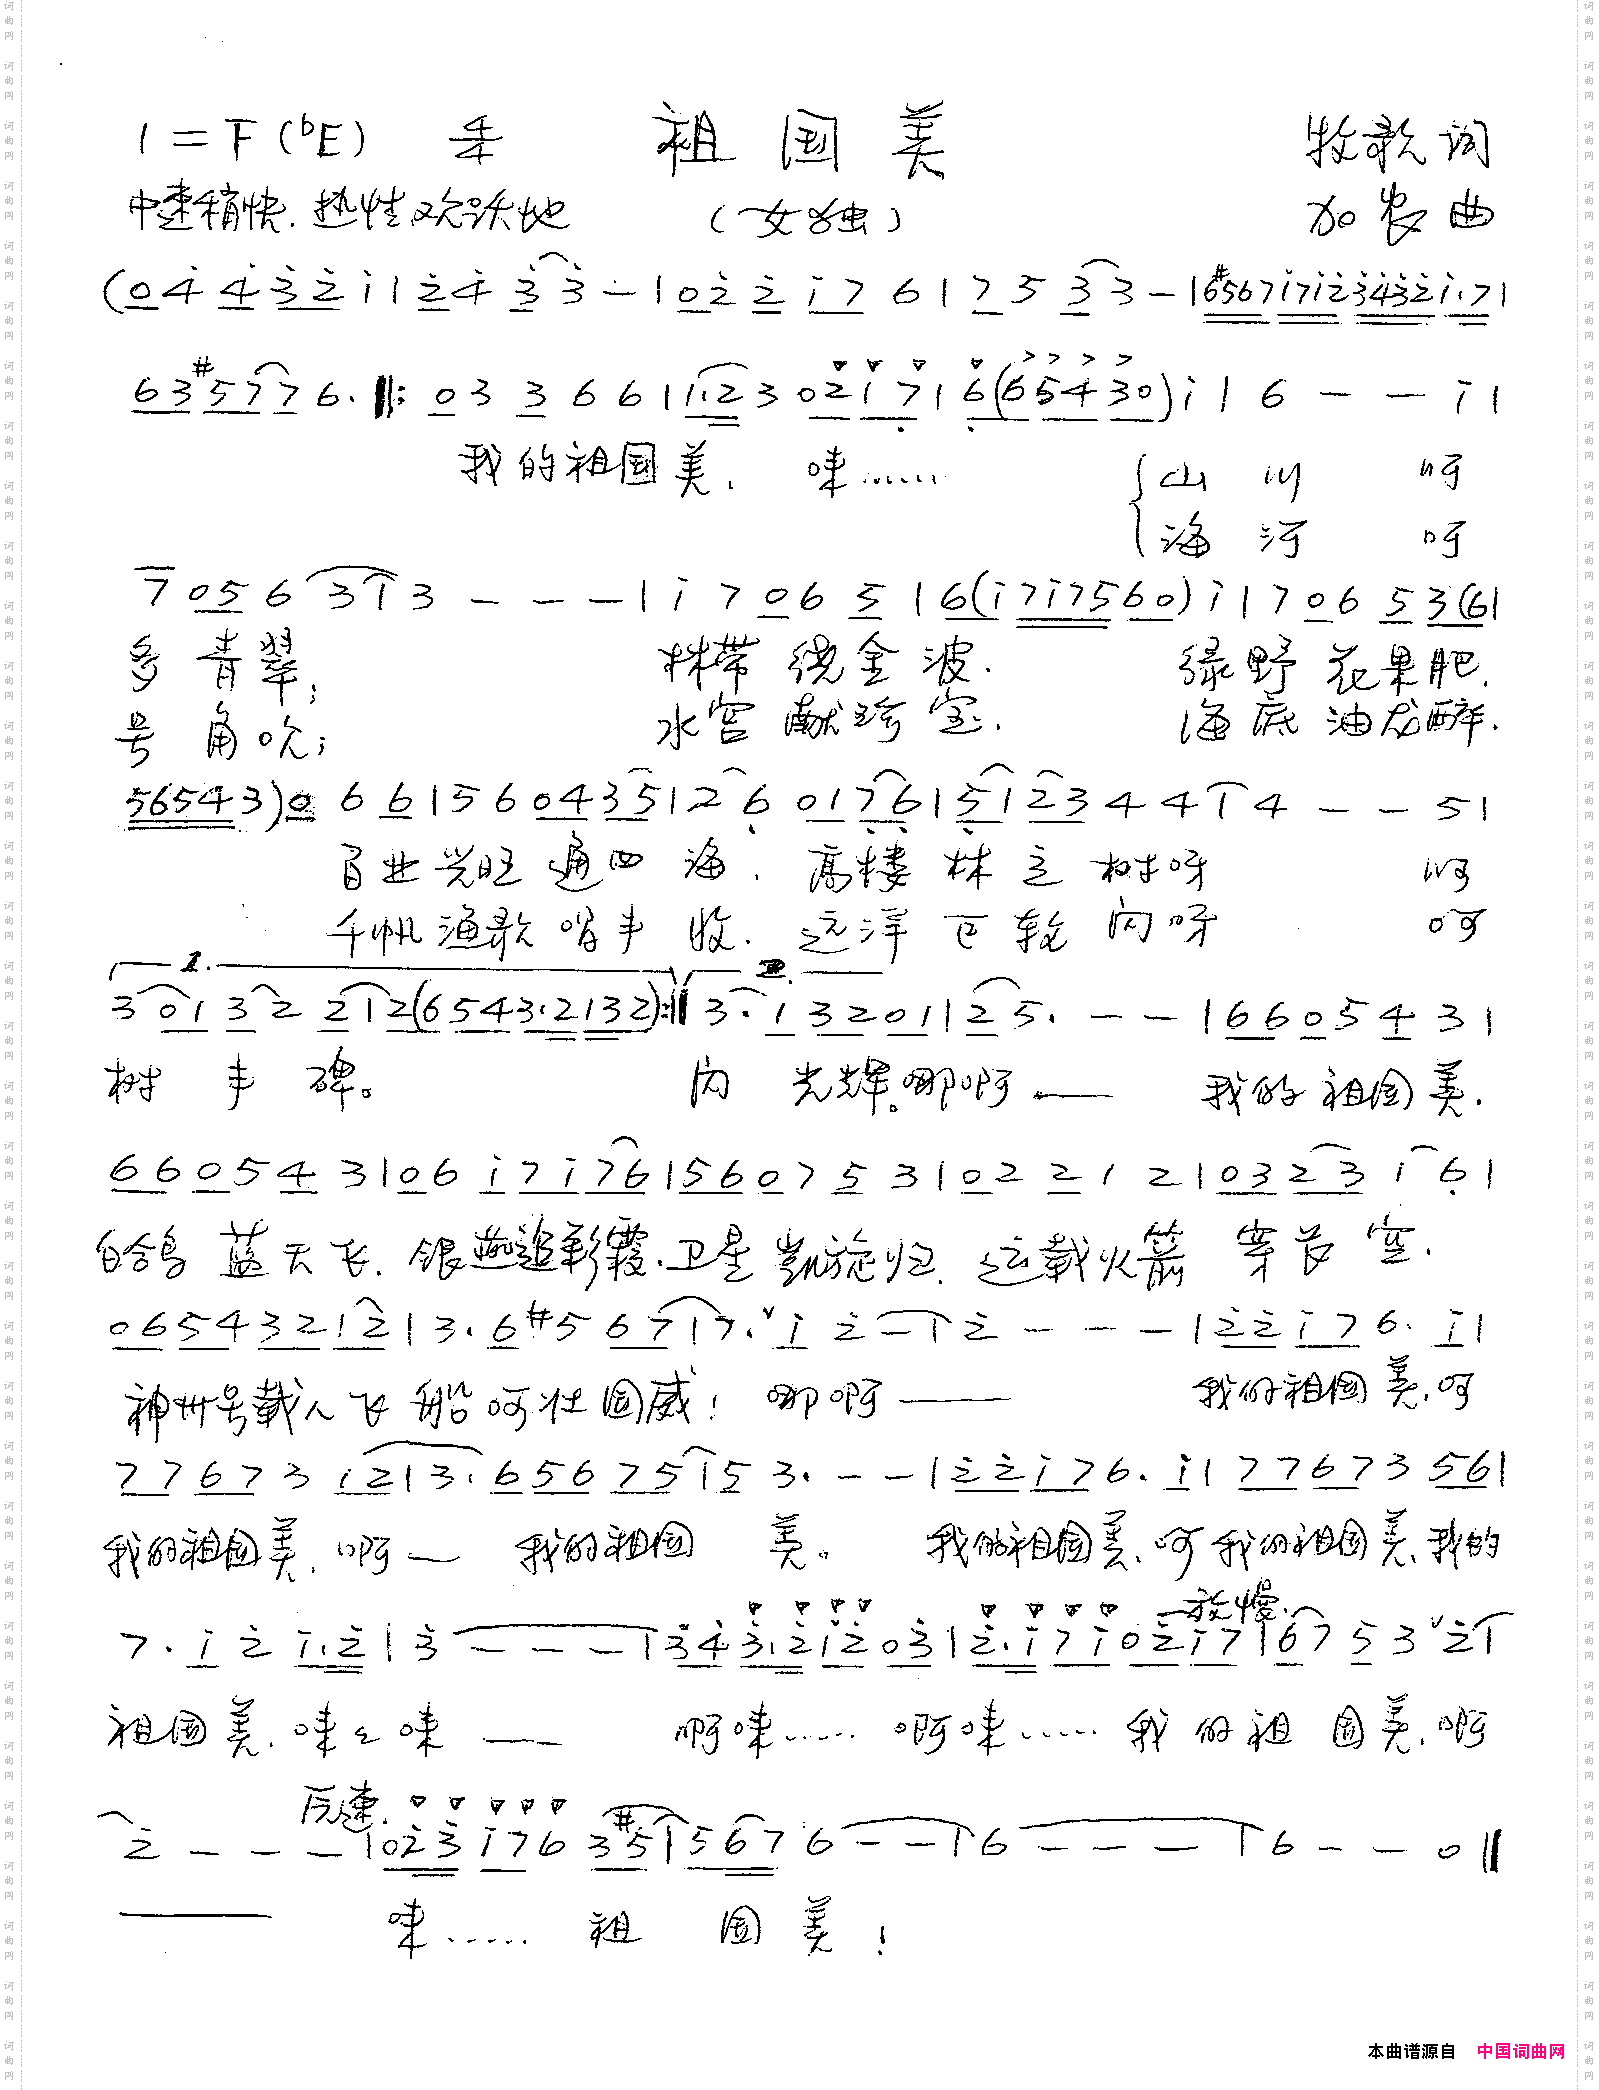 1=F(bE) 4/4 祖国美 牧歌词
中速稍快.热性欢跃地 (女独) 加农曲
(04 4 3 2 i | 2 4 3 3 - | 0 2 2 i 7 6 | 7 5 3 3 - | #6567 i7i2 3432 i·7 |
63 #57 7 6· ‖: 0 3 3 6 6 | 1·2 3 0 2 1 7 | 6 (6 5 4 3 0) i | 6 - - i |
我的祖国美. 唻…… 山川 呵
海河 呵
7 0 5 6 3 | 3 - - - | i 7 0 6 5 | 6 (i7i75 6 0) i | 7 0 6 5 3 (6 |
多青翠; 林带绕金波. 绿野花果肥.
号角吹; 水宫献珍宝. 海底油龙醉.
56543) 0 6 6 | 5 6 0 4 3 5 | 2 6 0 1 7 6 | 5 1 2 3 4 4 | 4 - - 5 |
百业兴旺通四海. 高楼林立树呀 呵
千帆渔歌唱丰收. 远洋巨轮闪呀 呵
I. II.
3 0 1 3 2 2 | 2 (6 5 4 3·2 1 3 2) :‖ 3· 1 3 2 0 1 | 2 5· - - | 6 6 0 5 4 3 |
树丰碑。 闪光辉。哪啊—— 我的祖国美.
6 6 0 5 4 3 | 0 6 i 7 i 7 6 | 5 6 0 7 5 3 | 0 2 2 1 2 | 0 3 2 3 1 6 |
白鸽蓝天飞. 银燕追彩霞.卫星凯旋归. 运载火箭穿长空.
0 6 5 4 3 2 1 2 | 3· 6 #5 6 7 | 7· i 2 - | 2 - - - | 2 2 i 7 6· i |
神州号载人飞船呵壮国威! 哪啊—— 我的祖国美,呵
7 7 6 7 3 i 2 | 3· 6 5 6 7 5 | 5 3· - - | 2 2 i 7 6· i | 7 7 6 7 3 5 6 |
我的祖国美.啊— 我的祖国美。 我的祖国美,呵我的祖国美,我的
放慢.
7· i 2 i·2 | 3 - - - | 3 4 3·2 i 2 0 3 | 2·i 7 i 0 2 i 7 | 6 7 5 3 2 |
祖国美.唻々唻—— 啊唻…… 啊唻……我的祖国美,啊
反速.
2 - - - | 0 2 3 i 7 6 3 #5 | 5 6 7 6 - - | 6 - - - | 6 - - 0 ‖
—— 唻…… 祖国美!
本曲谱源自 中国词曲网